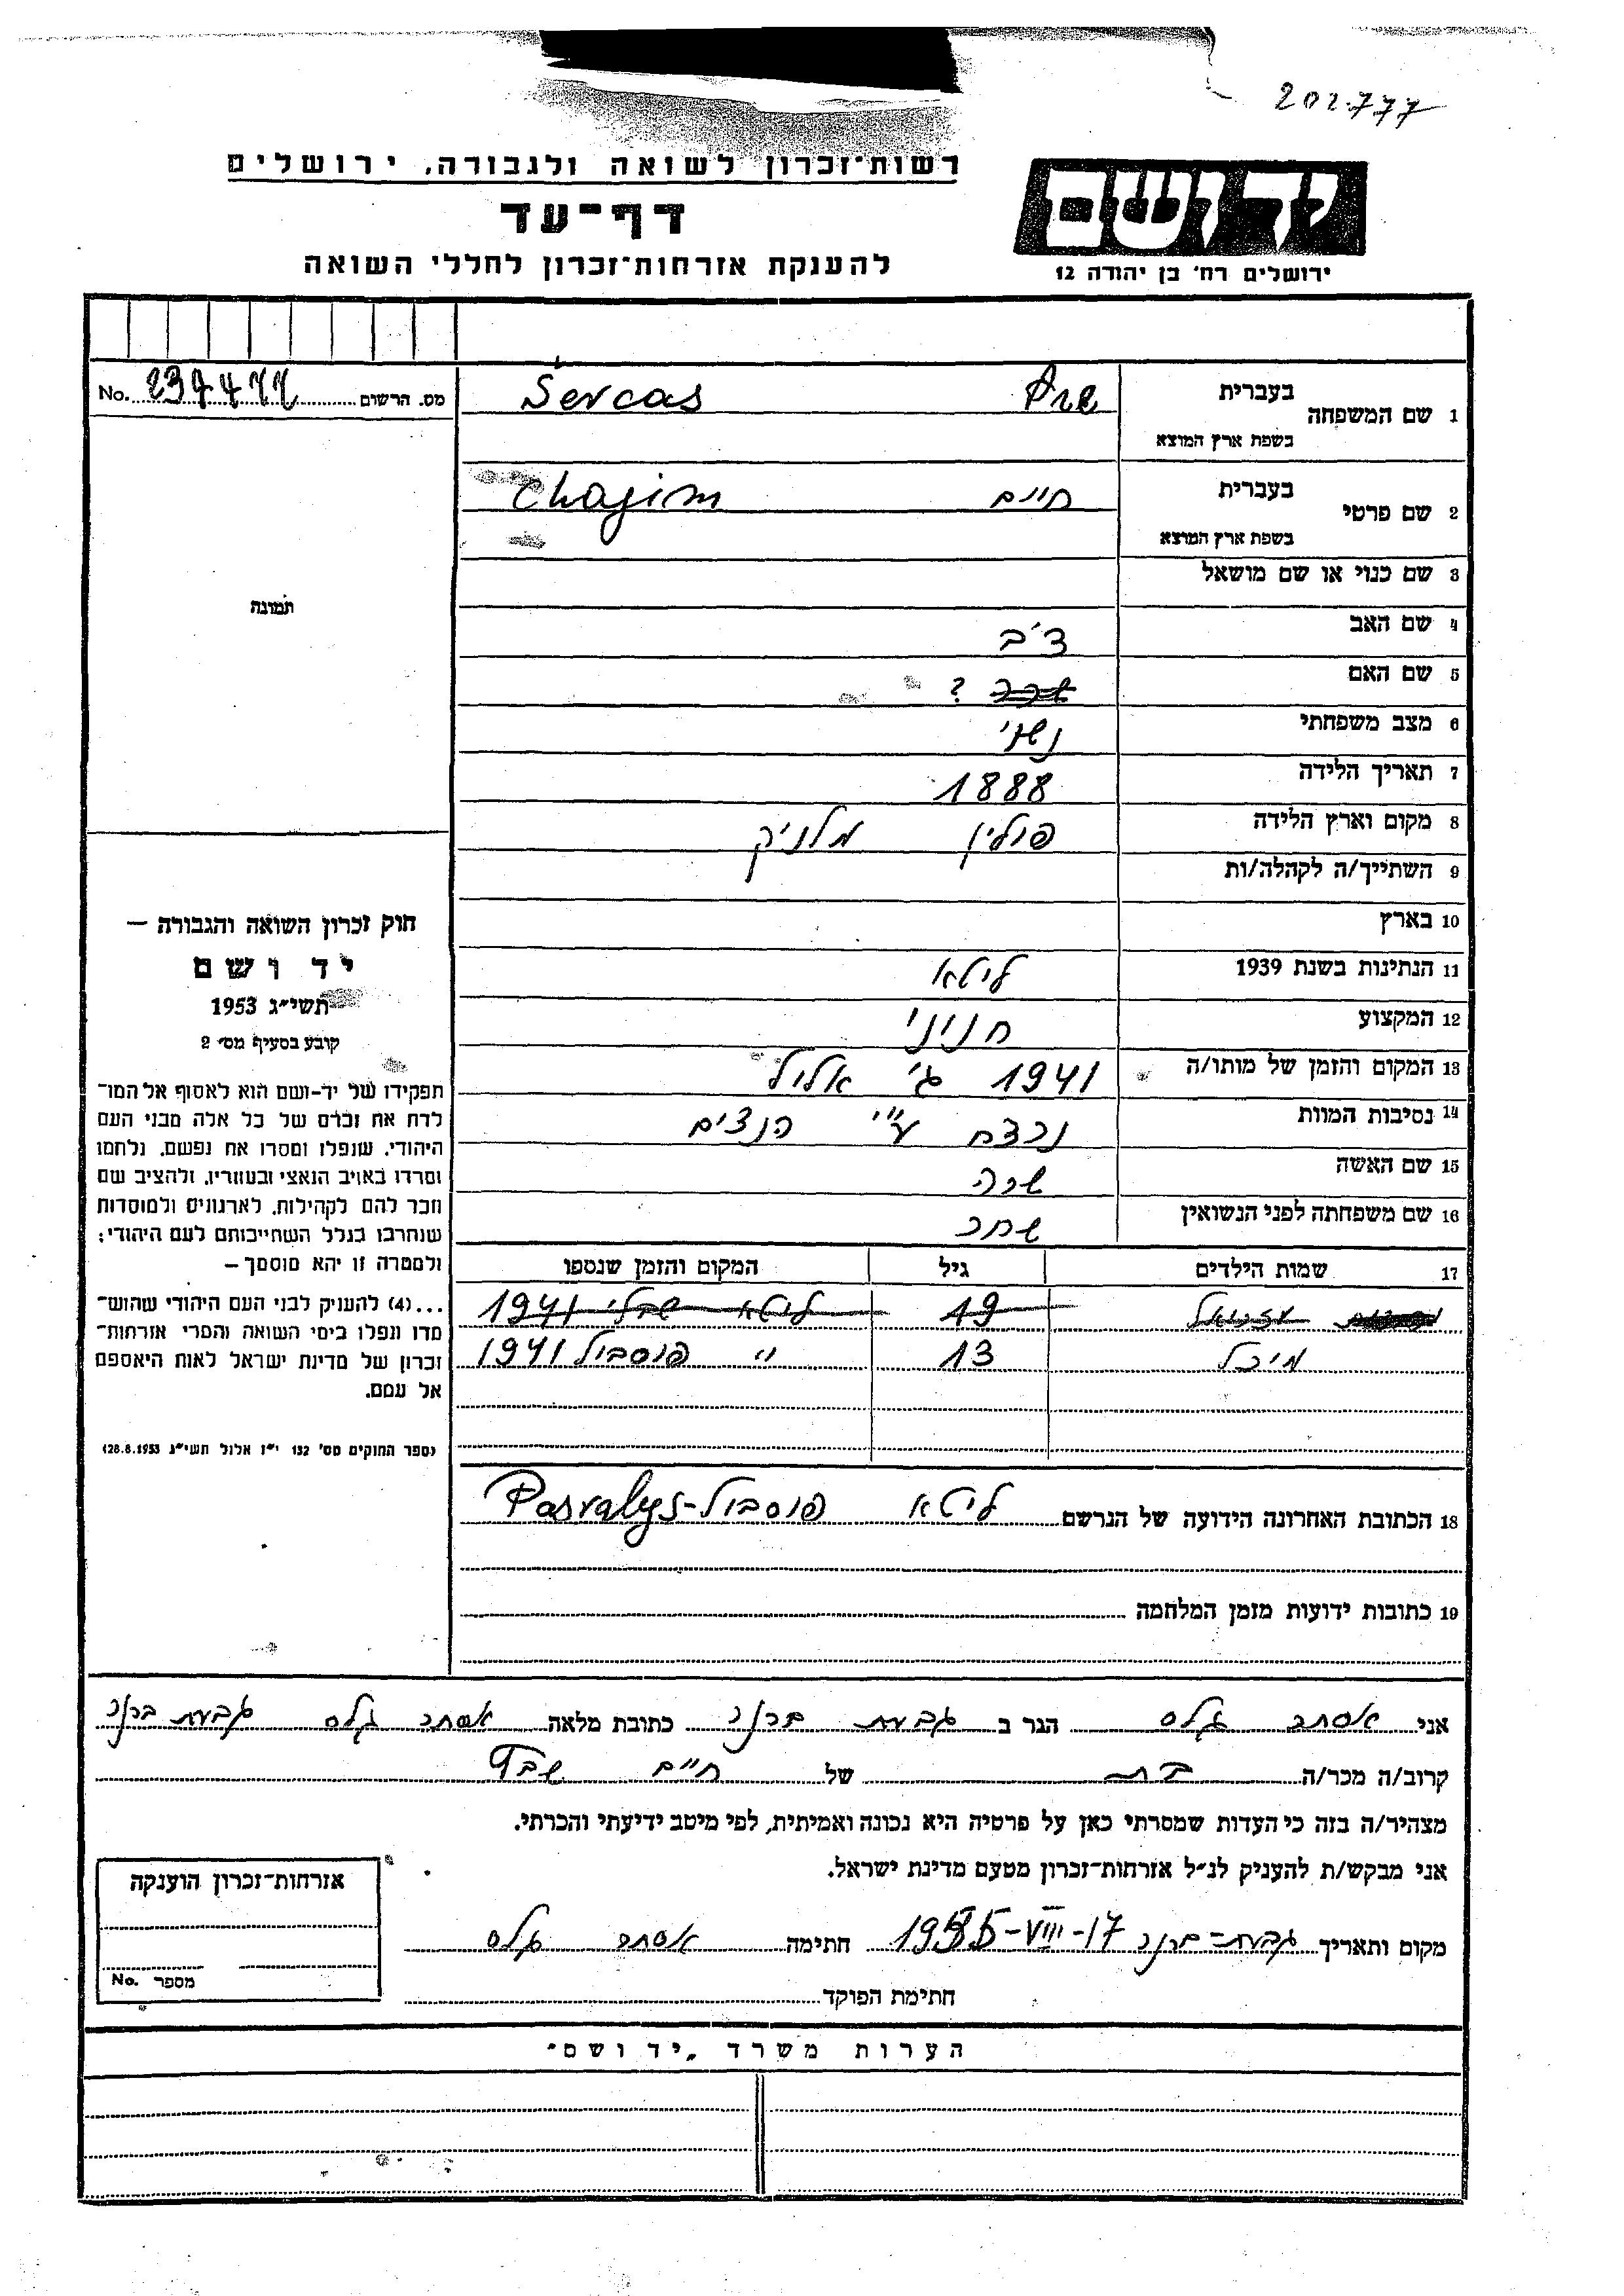 202.777
רשות־זכרון לשואה ולגבורה, ירושלים
יד ושם
דף־עד
להענקת אזרחות־זכרון לחללי השואה
ירושלים רח' בן יהודה 12
מס. הרשום No.
1 שם המשפחה בעברית Šercas
בשפת ארץ המוצא
2 שם פרטי בעברית חיים Chajim
בשפת ארץ המוצא
תמונה
3 שם כנוי או שם מושאל
4 שם האב
5 שם האם ?
6 מצב משפחתי נשוי
7 תאריך הלידה 1888
8 מקום וארץ הלידה פולין
9 השתייך/ה לקהלה/ות
10 בארץ
11 הנתינות בשנת 1939 ליטא
12 המקצוע חנוני
13 המקום והזמן של מותו/ה 1941 ג' אלול
14 נסיבות המוות נרצח ע"י הנצים
15 שם האשה שרה
16 שם משפחתה לפני הנשואין
17 שמות הילדים גיל המקום והזמן שנספו
19 ליטא שבלי 1941
מיכל 13 " פוסבול 1941
18 הכתובת האחרונה הידועה של הנרשם ליטא פוסבול-Pasvalys
19 כתובות ידועות מזמן המלחמה
חוק זכרון השואה והגבורה –
יד ושם
תשי״ג 1953
קובע בסעיף מס' 2
תפקידו של יד-ושם הוא לאסוף אל המו־
לדת את זכרם של כל אלה מבני העם
היהודי, שנפלו ומסרו את נפשם, נלחמו
ומרדו באויב הנאצי ובעוזריו, ולהציב שם
וזכר להם לקהילות, לארגונים ולמוסדות
שנחרבו בגלל השתייכותם לעם היהודי;
ולמטרה זו יהא מוסמך –
...(4) להעניק לבני העם היהודי שהוש־
מדו ונפלו בימי השואה והמרי אזרחות־
זכרון של מדינת ישראל לאות היאספם
אל עמם.
(ספר החוקים מס' 132 י״ז אלול תשי״ג 28.8.1953)
אני אסתר גלס הגר ב גבעת ברנר כתובת מלאה אסתר גלס גבעת ברנר
קרוב/ה מכר/ה בת של חיים
מצהיר/ה בזה כי העדות שמסרתי כאן על פרטיה היא נכונה ואמיתית, לפי מיטב ידיעתי והכרתי.
אני מבקש/ת להעניק לנ״ל אזרחות־זכרון מטעם מדינת ישראל.
מקום ותאריך גבעת-ברנר 17-VIII-1955 חתימה אסתר גלס
חתימת הפוקד
אזרחות־זכרון הוענקה
מספר No.
הערות משרד „יד ושם"